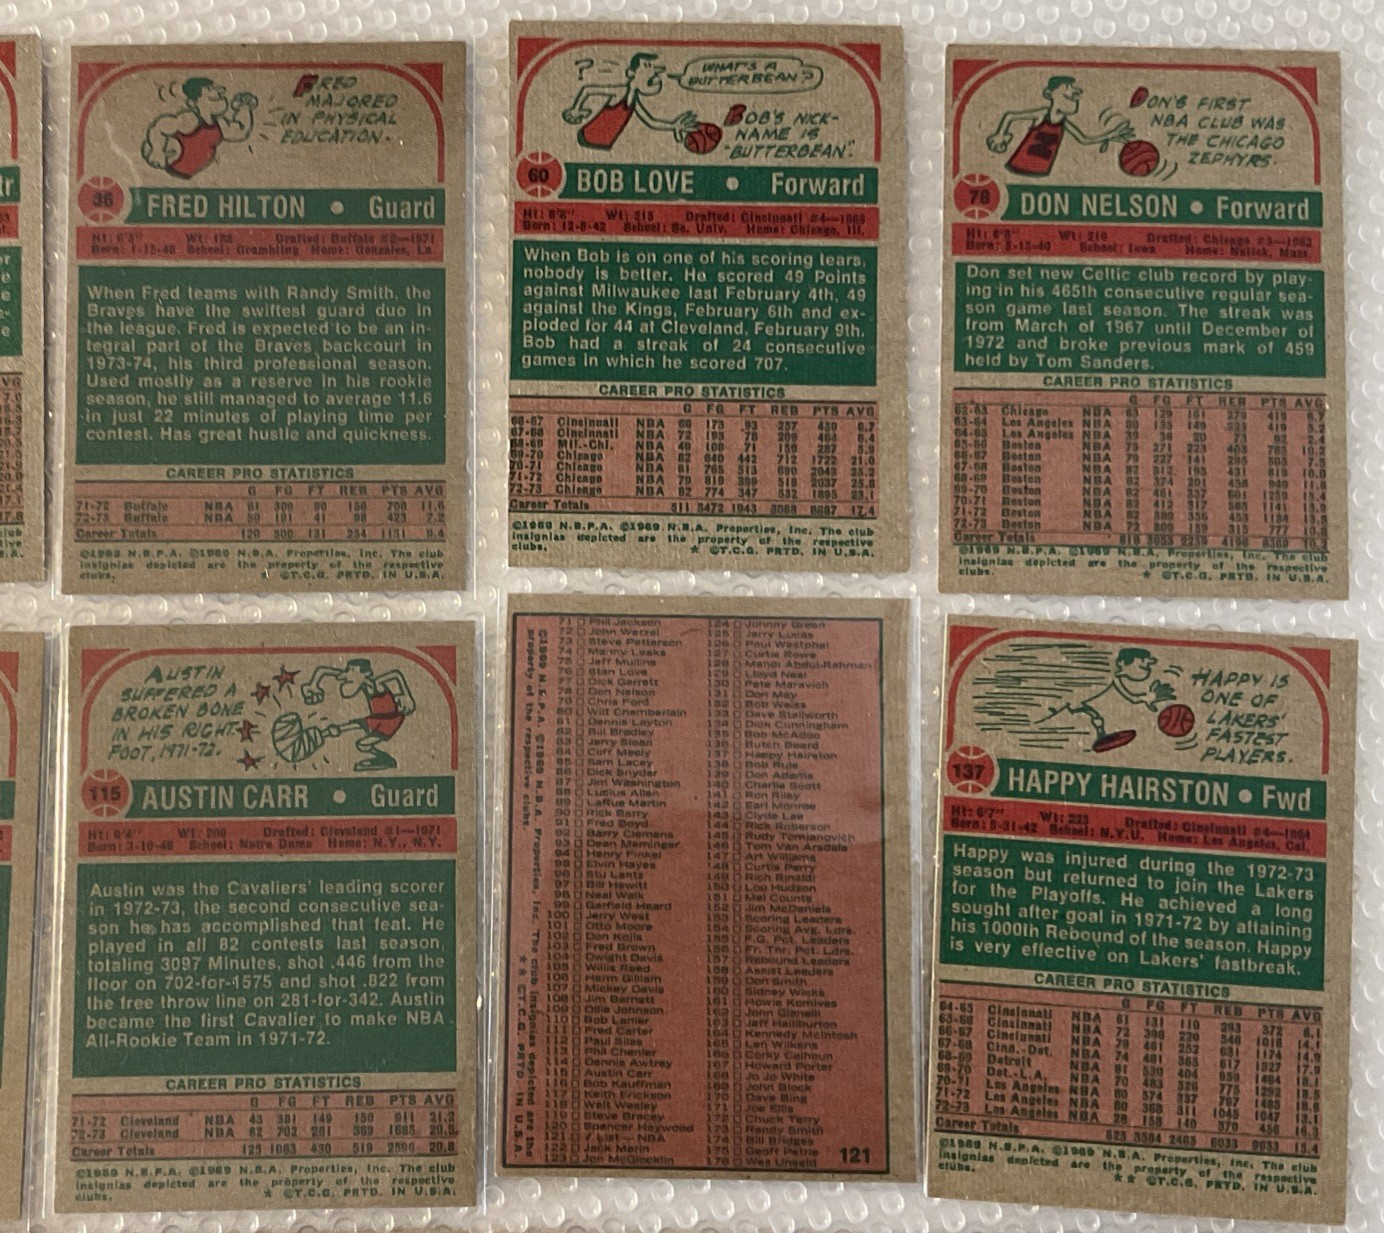 FRED
MAJORED
IN PHYSICAL
EDUCATION.
36
FRED HILTON • Guard
Ht: 6'3" Wt: 185 Drafted: Buffalo #2—1971
Born: 1-15-48 School: Grambling Home: Gonzales, La.
When Fred teams with Randy Smith, the
Braves have the swiftest guard duo in
the league. Fred is expected to be an in-
tegral part of the Braves backcourt in
1973-74, his third professional season.
Used mostly as a reserve in his rookie
season, he still managed to average 11.6
in just 22 minutes of playing time per
contest. Has great hustle and quickness.
CAREER PRO STATISTICS
G FG FT REB PTS AVG
71-72 Buffalo NBA 61 309 90 156 708 11.6
72-73 Buffalo NBA 59 191 41 98 423 7.2
Career Totals 120 500 131 254 1131 9.4
©1969 N.B.P.A. ©1969 N.B.A. Properties, Inc. The club
insignias depicted are the property of the respective
clubs. * ©T.C.G. PRTD. IN U.S.A.
?—? WHAT'S A
BUTTERBEAN?
BOB'S NICK-
NAME IS
"BUTTERBEAN".
60
BOB LOVE • Forward
Ht: 6'8" Wt: 215 Drafted: Cincinnati #4—1965
Born: 12-8-42 School: So. Univ. Home: Chicago, Ill.
When Bob is on one of his scoring tears,
nobody is better. He scored 49 Points
against Milwaukee last February 4th, 49
against the Kings, February 6th and ex-
ploded for 44 at Cleveland, February 9th.
Bob had a streak of 24 consecutive
games in which he scored 707.
CAREER PRO STATISTICS
G FG FT REB PTS AVG
66-67 Cincinnati NBA 66 173 93 257 439 6.7
67-68 Cincinnati NBA 72 193 78 209 464 6.4
68-69 Mil.-Chi. NBA 49 108 71 150 287 5.9
69-70 Chicago NBA 82 640 442 712 1722 21.0
70-71 Chicago NBA 81 765 513 690 2043 25.2
71-72 Chicago NBA 79 819 399 518 2037 25.8
72-73 Chicago NBA 82 774 347 532 1895 23.1
Career Totals 511 3472 1943 3068 8887 17.4
©1969 N.B.P.A. ©1969 N.B.A. Properties, Inc. The club
insignias depicted are the property of the respective
clubs. * ©T.C.G. PRTD. IN U.S.A.
DON'S FIRST
NBA CLUB WAS
THE CHICAGO
ZEPHYRS.
78
DON NELSON • Forward
Ht: 6'6" Wt: 210 Drafted: Chicago #3—1962
Born: 5-15-40 School: Iowa Home: Natick, Mass.
Don set new Celtic club record by play-
ing in his 465th consecutive regular sea-
son game last season. The streak was
from March of 1967 until December of
1972 and broke previous mark of 459
held by Tom Sanders.
CAREER PRO STATISTICS
G FG FT REB PTS AVG
62-63 Chicago NBA
63-64 Los Angeles NBA
64-65 Los Angeles NBA
65-66 Boston NBA
66-67 Boston NBA
67-68 Boston NBA
68-69 Boston NBA
69-70 Boston NBA
70-71 Boston NBA
71-72 Boston NBA
72-73 Boston NBA
Career Totals
©1969 N.B.P.A. ©1969 N.B.A. Properties, Inc. The club
insignias depicted are the property of the respective
clubs. * ©T.C.G. PRTD. IN U.S.A.
AUSTIN
SUFFERED A
BROKEN BONE
IN HIS RIGHT
FOOT, 1971-72.
115
AUSTIN CARR • Guard
Ht: 6'4" Wt: 200 Drafted: Cleveland #1—1971
Born: 3-10-48 School: Notre Dame Home: N.Y., N.Y.
Austin was the Cavaliers' leading scorer
in 1972-73, the second consecutive sea-
son he has accomplished that feat. He
played in all 82 contests last season,
totaling 3097 Minutes, shot .446 from the
floor on 702-for-1575 and shot .822 from
the free throw line on 281-for-342. Austin
became the first Cavalier to make NBA
All-Rookie Team in 1971-72.
CAREER PRO STATISTICS
G FG FT REB PTS AVG
71-72 Cleveland NBA 43 381 149 150 911 21.2
72-73 Cleveland NBA 82 702 281 369 1685 20.5
Career Totals 125 1083 430 519 2596 20.8
©1969 N.B.P.A. ©1969 N.B.A. Properties, Inc. The club
insignias depicted are the property of the respective
clubs. * ©T.C.G. PRTD. IN U.S.A.
©1969 N.B.P.A. ©1969 N.B.A. Properties, Inc. The club insignias depicted are the
property of the respective clubs. * * ©T.C.G. PRTD. IN U.S.A.
71 Phil Jackson
72 John Wetzel
73 Steve Patterson
74 Manny Leaks
75 Jeff Mullins
76 Stan Love
77 Dick Garrett
78 Don Nelson
79 Chris Ford
80 Wilt Chamberlain
81 Dennis Layton
82 Bill Bradley
83 Jerry Sloan
84 Cliff Meely
85 Sam Lacey
86 Dick Snyder
87 Jim Washington
88 Lucius Allen
89 LaRue Martin
90 Rick Barry
91 Fred Boyd
92 Barry Clemens
93 Dean Meminger
94 Henry Finkel
95 Elvin Hayes
96 Stu Lantz
97 Bill Hewitt
98 Neal Walk
99 Garfield Heard
100 Jerry West
101 Otto Moore
102 Don Kojis
103 Fred Brown
104 Dwight Davis
105 Willis Reed
106 Herm Gilliam
107 Mickey Davis
108 Jim Barnett
109 Ollie Johnson
110 Bob Lanier
111 Fred Carter
112 Paul Silas
113 Phil Chenier
114 Dennis Awtrey
115 Austin Carr
116 Bob Kauffman
117 Keith Erickson
118 Walt Wesley
119 Steve Bracey
120 Spencer Haywood
121 ✓ List — NBA
122 Jack Marin
123 Jon McGlocklin
124 Johnny Green
125 Jerry Lucas
126 Paul Westphal
127 Curtis Rowe
128 Mahdi Abdul-Rahman
129 Lloyd Neal
130 Pete Maravich
131 Don May
132 Bob Weiss
133 Dave Stallworth
134 Dick Cunningham
135 Bob McAdoo
136 Butch Beard
137 Happy Hairston
138 Bob Rule
139 Don Adams
140 Charlie Scott
141 Ron Riley
142 Earl Monroe
143 Clyde Lee
144 Rick Roberson
145 Rudy Tomjanovich
146 Tom Van Arsdale
147 Art Williams
148 Curtis Perry
149 Rich Rinaldi
150 Lou Hudson
151 Mel Counts
152 Jim McDaniels
153 Scoring Leaders
154 Scoring Avg. Ldrs.
155 F.G. Pct. Leaders
156 Fr. Thr. Pct. Ldrs.
157 Rebound Leaders
158 Assist Leaders
159 Don Smith
160 Sidney Wicks
161 Howie Komives
162 John Gianelli
163 Jeff Halliburton
164 Kennedy McIntosh
165 Len Wilkens
166 Corky Calhoun
167 Howard Porter
168 Jo Jo White
169 John Block
170 Dave Bing
171 Joe Ellis
172 Chuck Terry
173 Randy Smith
174 Bill Bridges
175 Geoff Petrie
176 Wes Unseld
121
HAPPY IS
ONE OF
LAKERS'
FASTEST
PLAYERS.
137
HAPPY HAIRSTON • Fwd
Ht: 6'7" Wt: 225 Drafted: Cincinnati #4—1964
Born: 5-31-42 School: N.Y.U. Home: Los Angeles, Cal.
Happy was injured during the 1972-73
season but returned to join the Lakers
for the Playoffs. He achieved a long
sought after goal in 1971-72 by attaining
his 1000th Rebound of the season. Happy
is very effective on Lakers' fastbreak.
CAREER PRO STATISTICS
G FG FT REB PTS AVG
64-65 Cincinnati NBA 61 131 110 293 372 6.1
65-66 Cincinnati NBA 72 398 220 546 1016 14.1
66-67 Cincinnati NBA 79 461 252 631 1174 14.9
67-68 Cinn.-Det. NBA 74 481 365 617 1327 17.9
68-69 Detroit NBA 81 530 404 959 1464 18.1
69-70 Det.-L.A. NBA 70 483 326 775 1292 18.5
70-71 Los Angeles NBA 80 574 337 797 1485 18.6
71-72 Los Angeles NBA 80 368 311 1045 1047 13.1
72-73 Los Angeles NBA 28 158 140 370 456 16.3
Career Totals 625 3584 2465 6033 9633 15.4
©1969 N.B.P.A. ©1969 N.B.A. Properties, Inc. The club
insignias depicted are the property of the respective
clubs. * * ©T.C.G. PRTD. IN U.S.A.